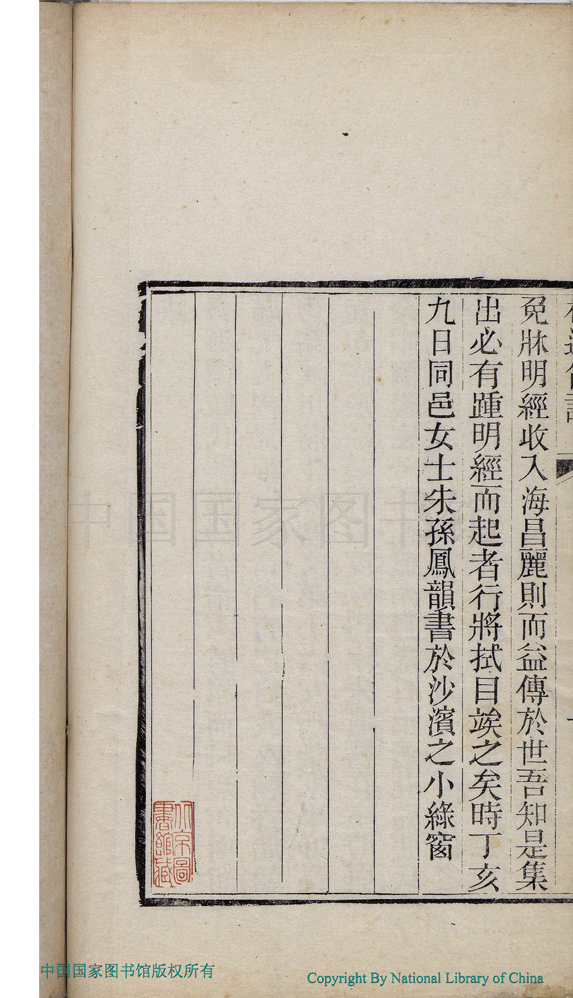 免牀明經收入海昌麗則而益傳於世吾知是集
出必有踵明經而起者行將拭目竢之矣時丁亥
九日同邑女士朱孫鳳韻書於沙濱之小綠窗
北京圖書館藏
中国国家图书
中国国家图书馆版权所有
Copyright By National Library of China